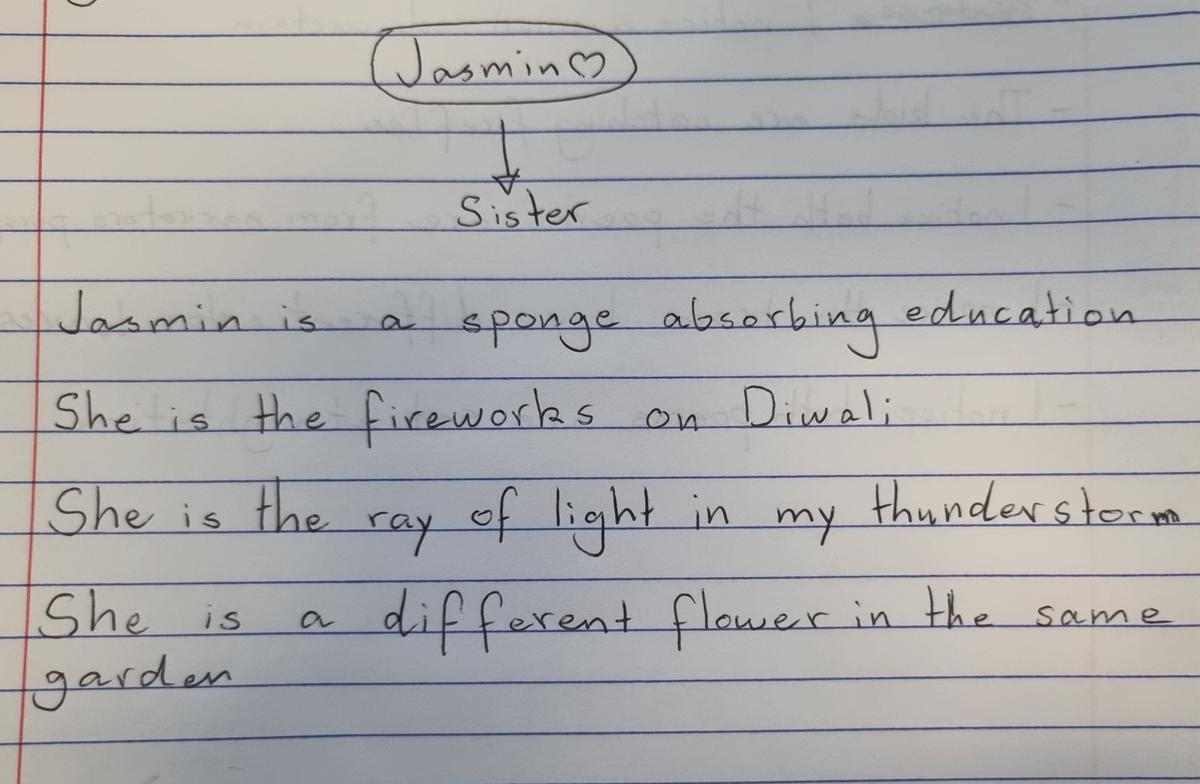 Jasmin♡
Sister
Jasmin is a sponge absorbing education
She is the fireworks on Diwali
She is the ray of light in my thunderstorm
She is a different flower in the same
garden